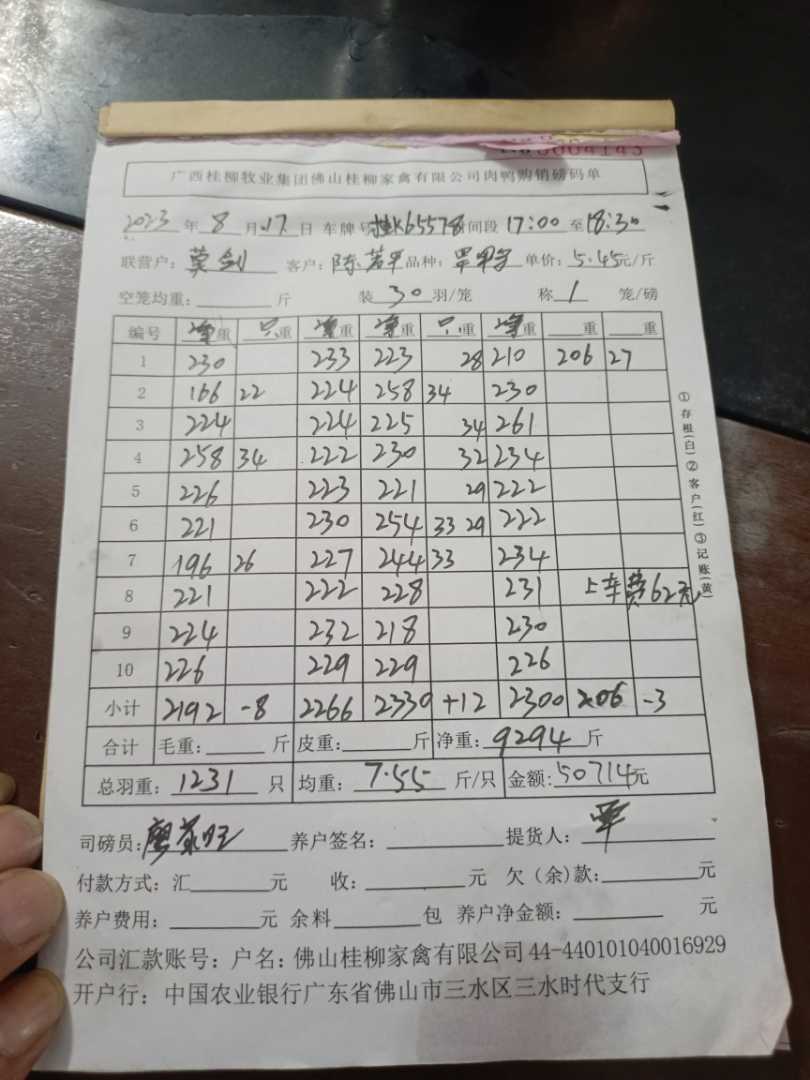 0004143
广西桂柳牧业集团佛山桂柳家禽有限公司肉鸭购销磅码单
2023 年 8 月 17 日 车牌号 桂K65578 时间段 17:00 至 18:30
联营户: 莫剑 客户: 陈若平 品种: 单价: 5.45 元/斤
空笼均重: 斤 装 30 羽/笼 称 1 笼/磅
编号 净重 只重 净重 净重 只重 净重 重 重
1 230 233 223 28 210 206 27
2 166 22 224 258 34 230
3 224 224 225 34 261
4 258 34 222 230 32 234
5 226 223 221 29 222
6 221 230 254 33 29 222
7 196 26 227 244 33 234
8 221 222 228 231 上车费62元
9 224 232 218 230
10 226 229 229 226
小计 2192 -8 2266 2330 +12 2300 206 -3
合计 毛重: 斤 皮重: 斤 净重: 9294 斤
总羽重: 1231 只 均重: 7.55 斤/只 金额: 50714元
司磅员: 养户签名: 提货人: 覃
付款方式: 汇 元 收: 元 欠(余)款: 元
养户费用: 元 余料 包 养户净金额: 元
公司汇款账号: 户名: 佛山桂柳家禽有限公司 44-440101040016929
开户行: 中国农业银行广东省佛山市三水区三水时代支行
①存根(白)②客户(红)③记账(黄)